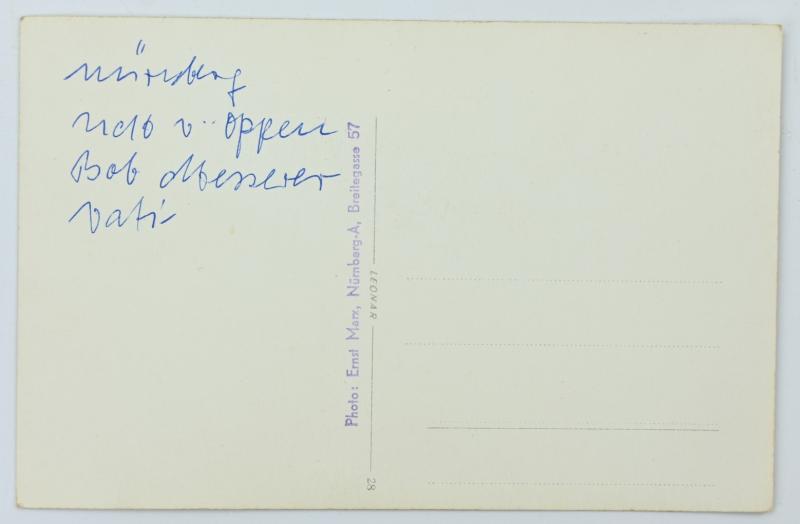 Nürnberg
Udo v. Oppen
Bob Messerer
Vati
Photo: Ernst Marx, Nürnberg-A, Breitegasse 57
LEONAR
28